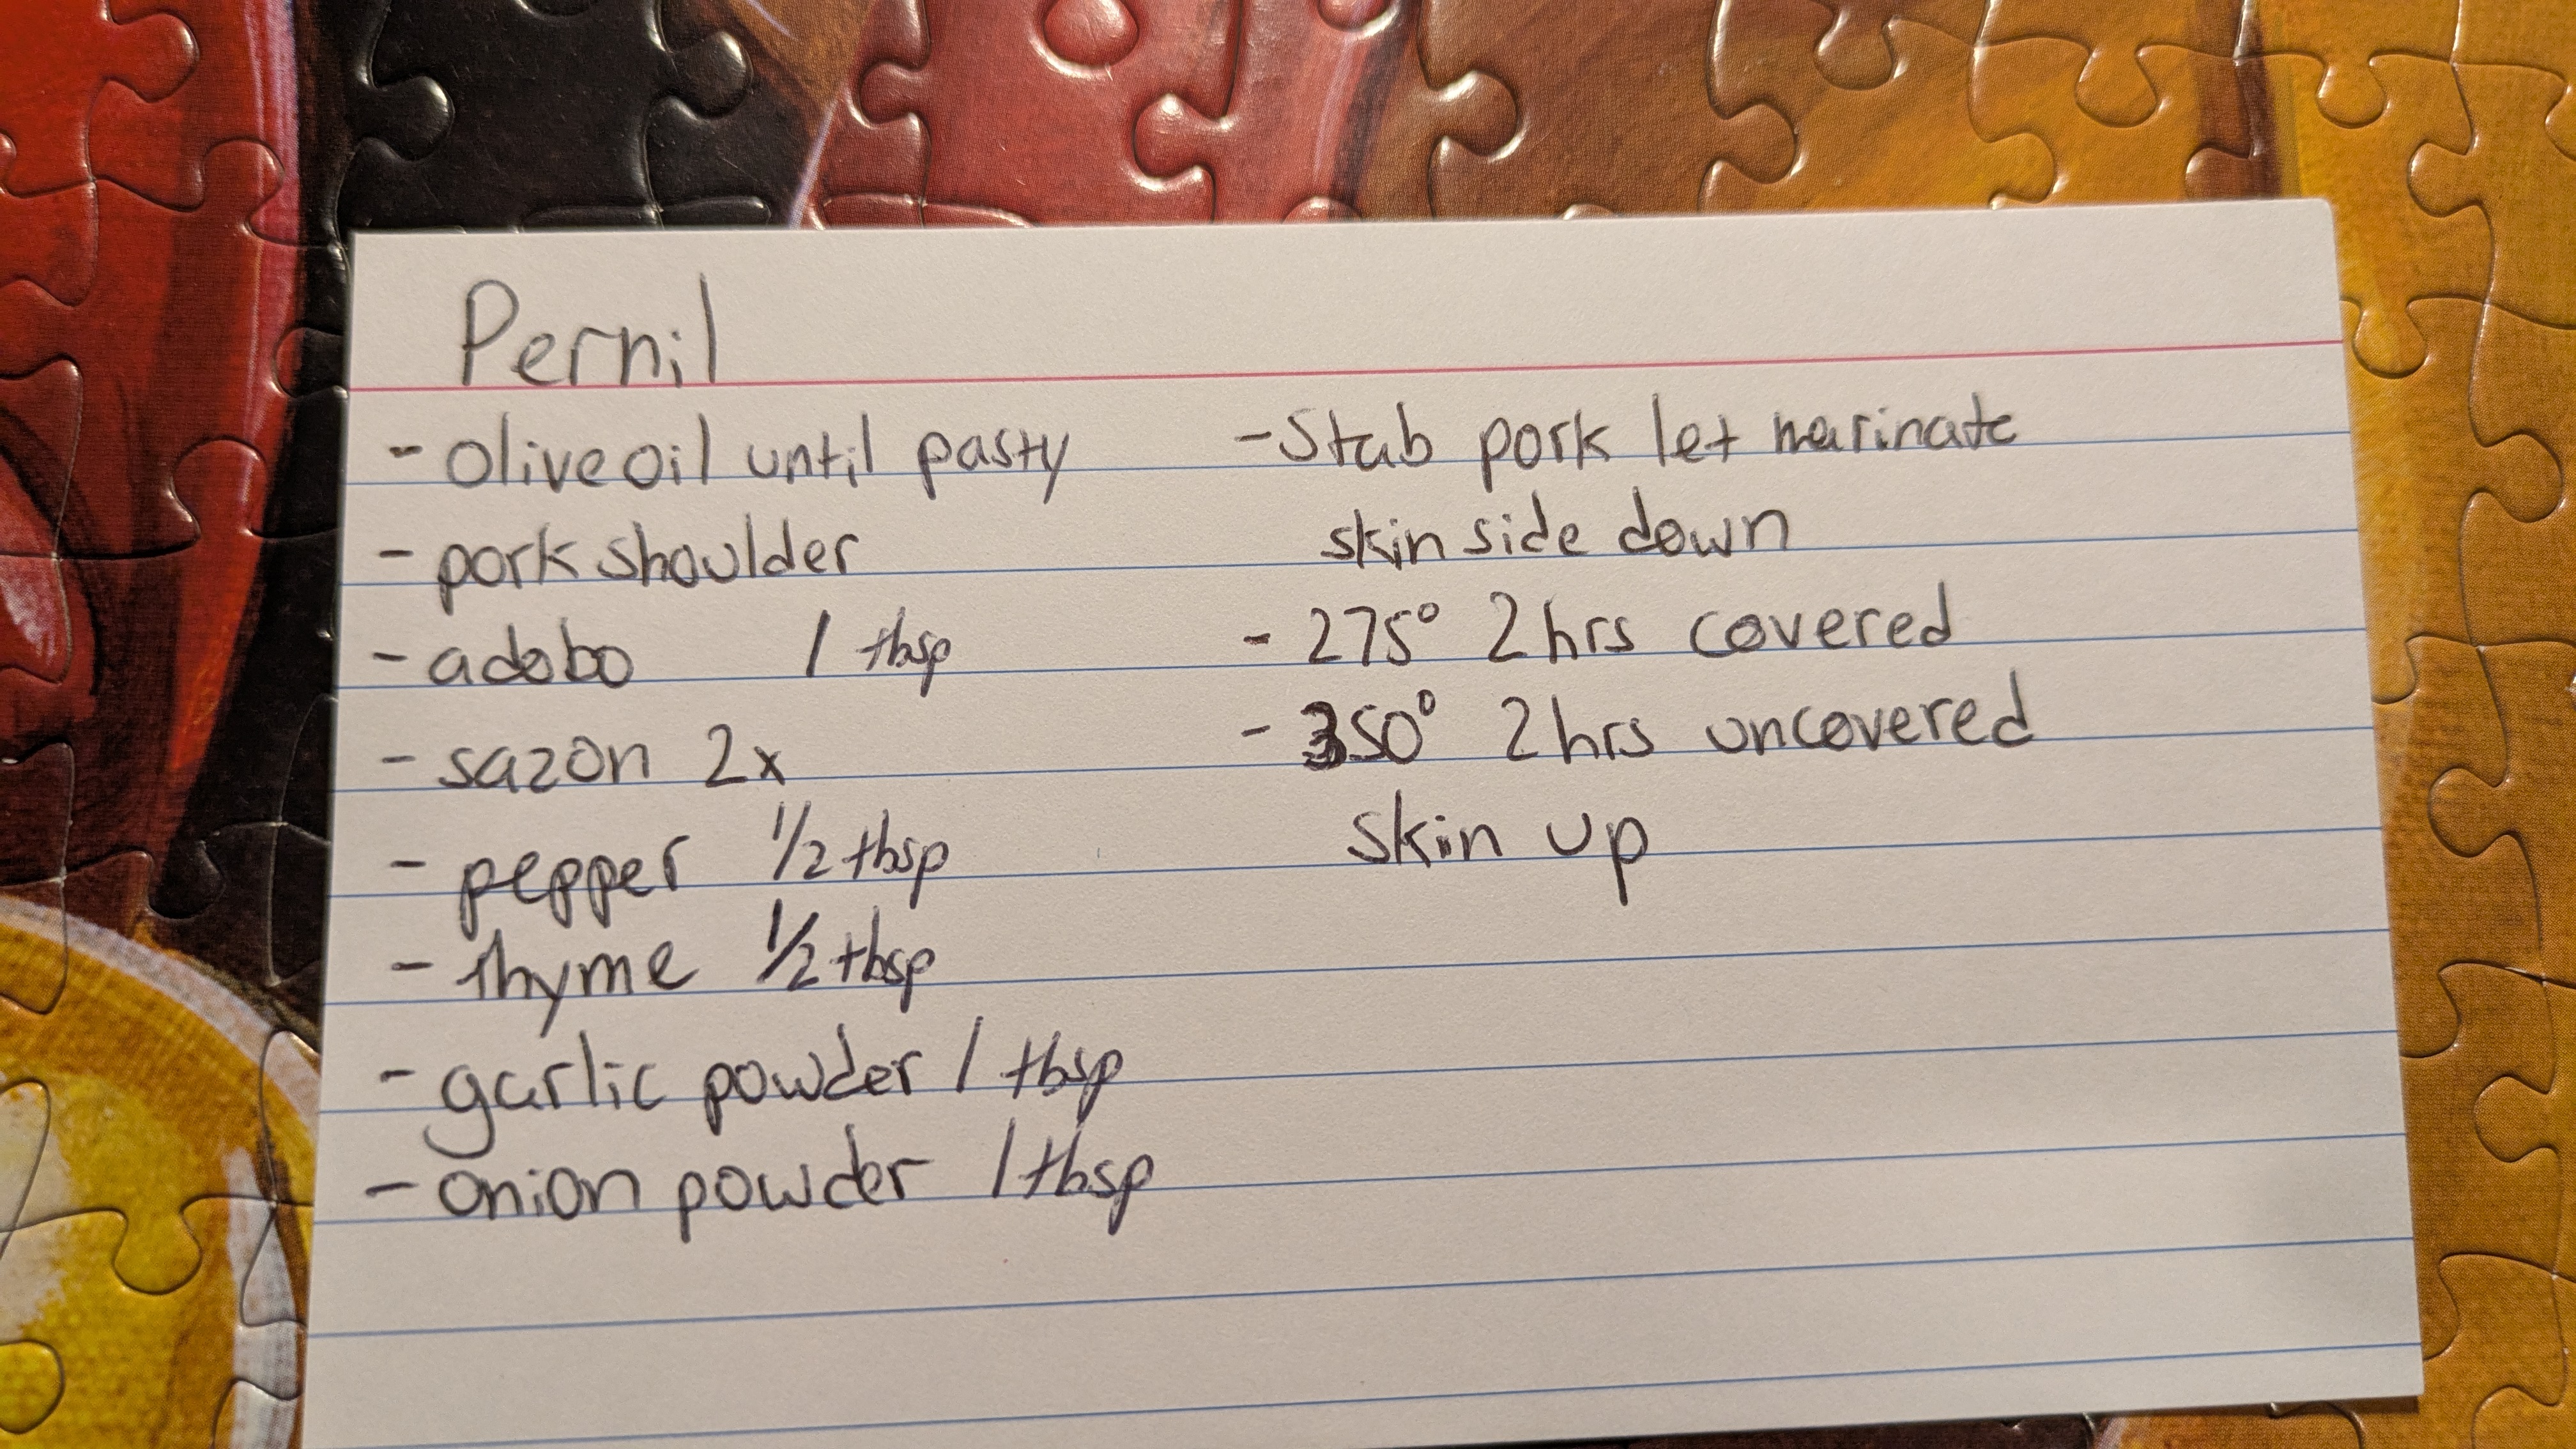 Pernil
- olive oil until pasty
- pork shoulder
- adobo 1 tbsp
- sazon 2x
- pepper 1/2 tbsp
- thyme 1/2 tbsp
- garlic powder 1 tbsp
- onion powder 1 tbsp
- Stab pork let marinate
skin side down
- 275° 2 hrs covered
- 350° 2 hrs uncovered
skin up